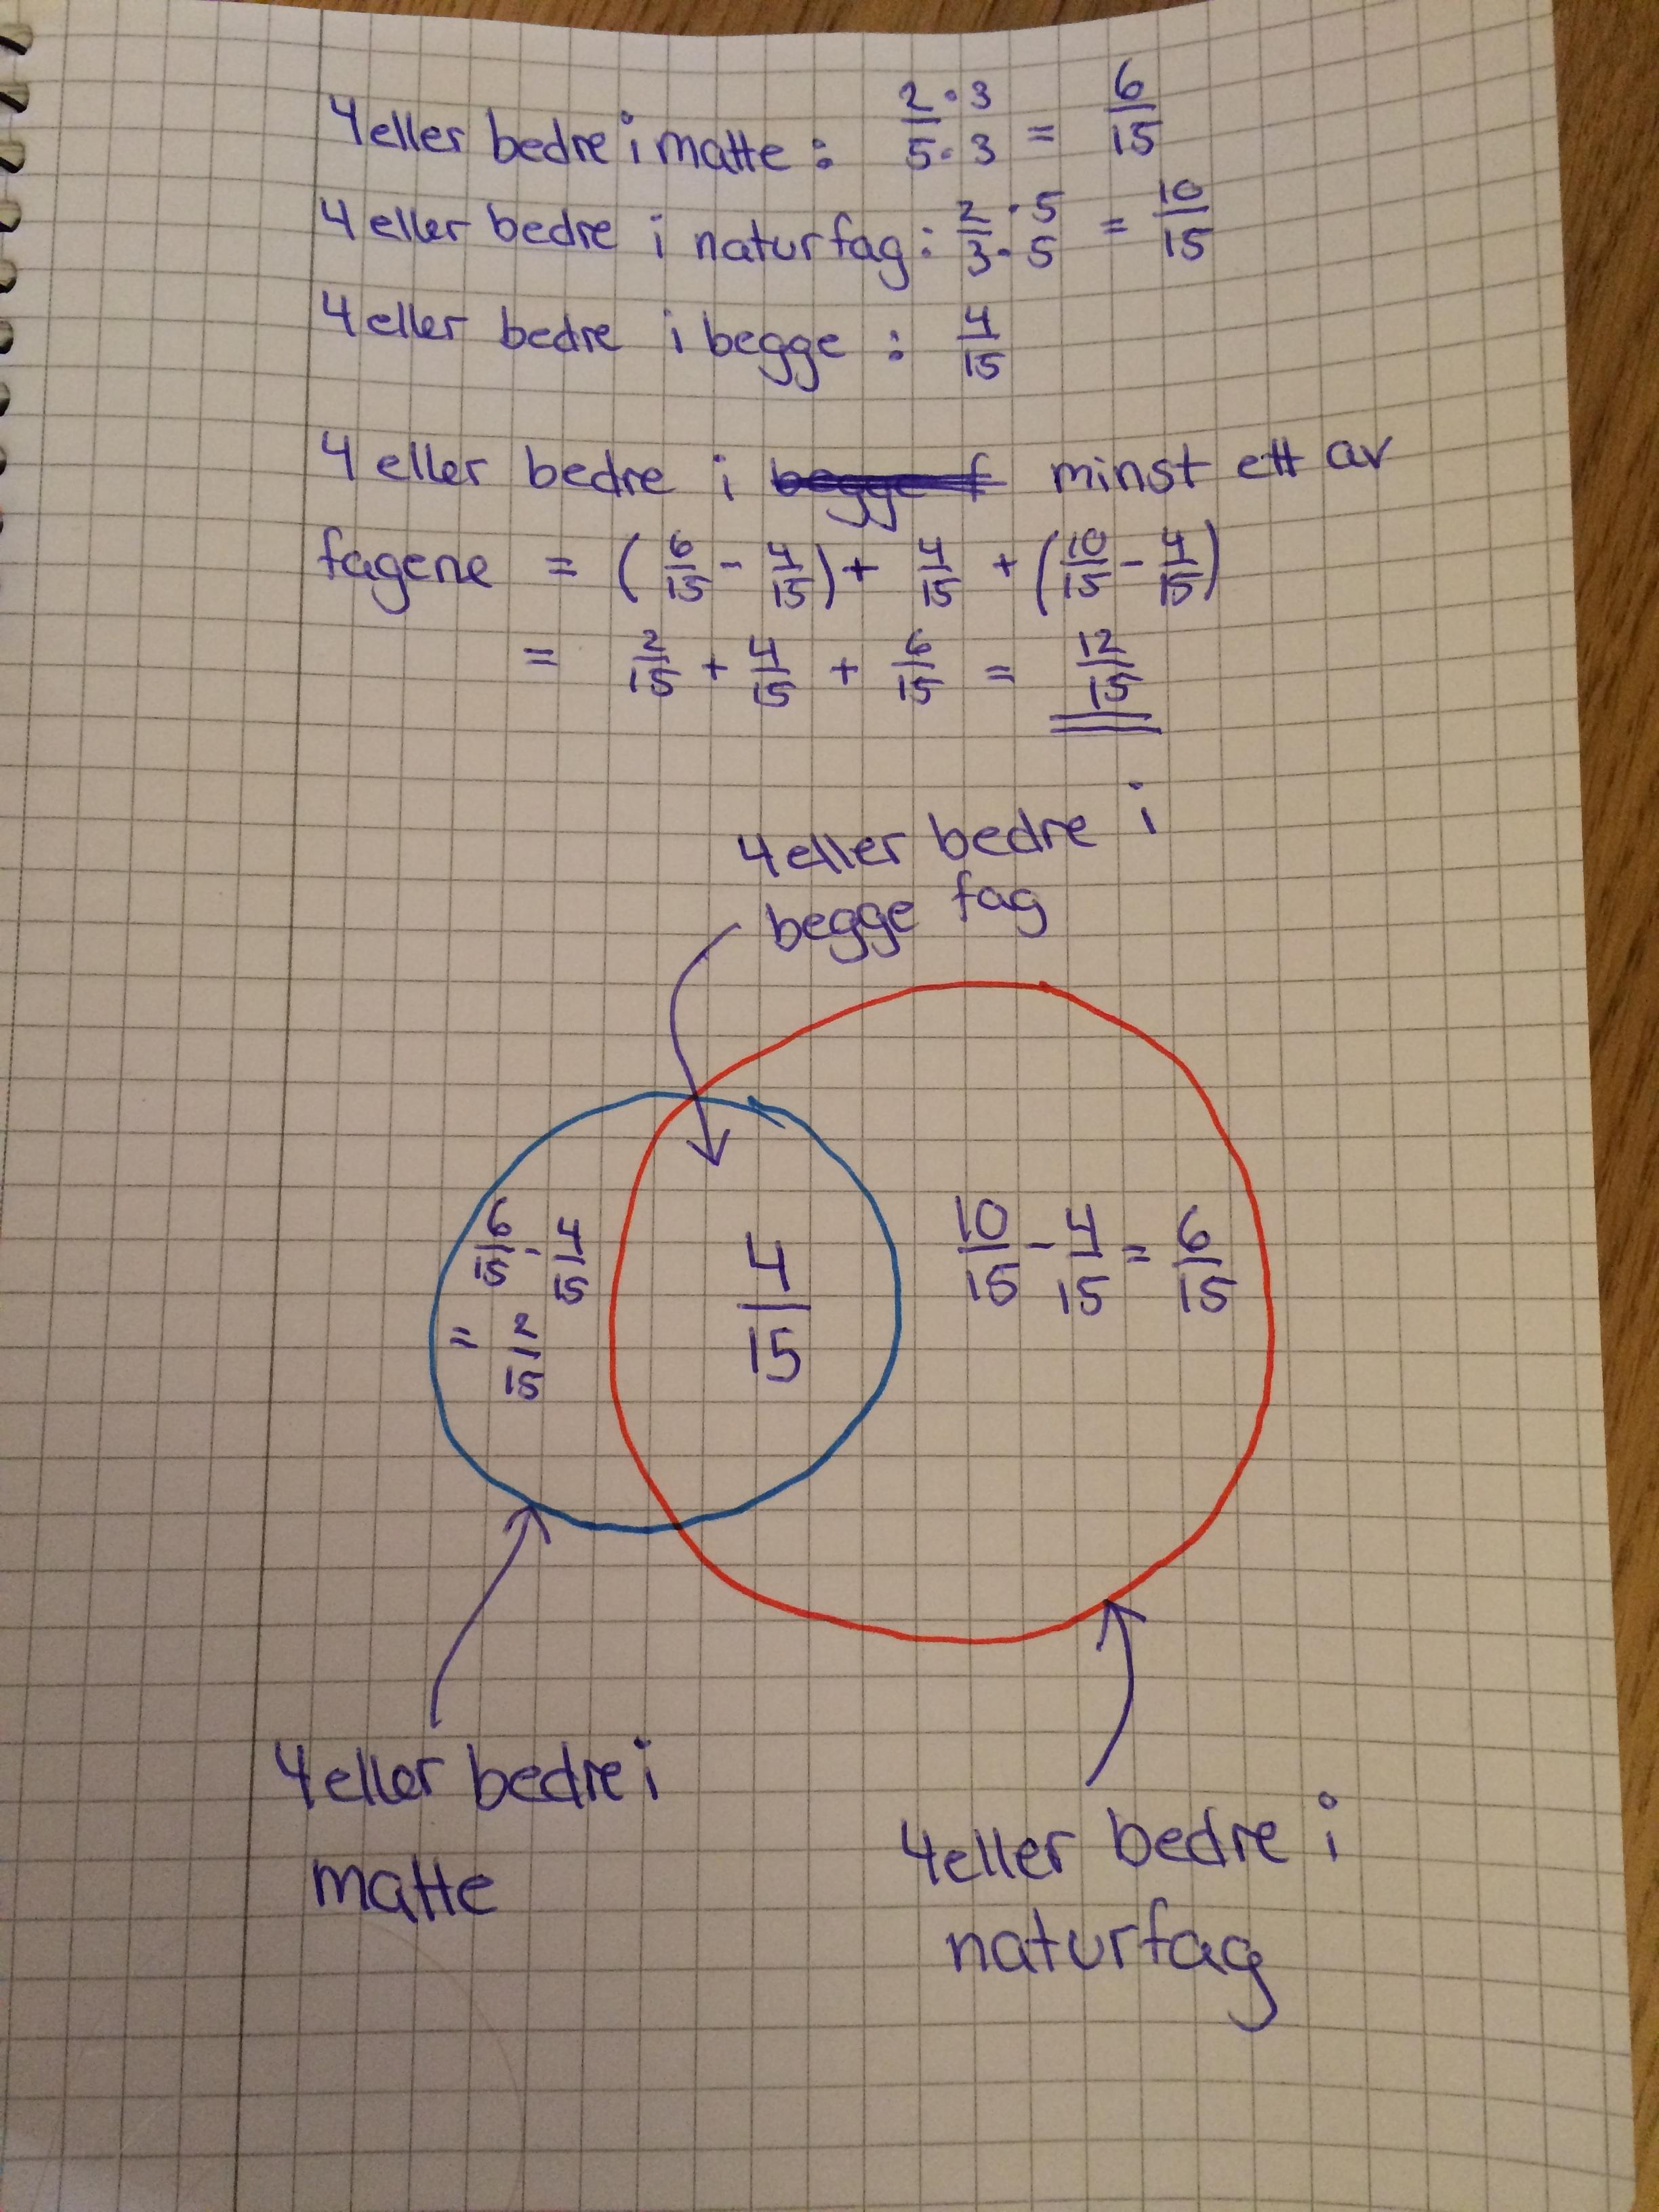 4 eller bedre i matte : 2·3/5·3 = 6/15
4 eller bedre i naturfag : 2·5/3·5 = 10/15
4 eller bedre i begge : 4/15
4 eller bedre i begge f minst ett av
fagene = (6/15 - 4/15) + 4/15 + (10/15 - 4/15)
= 2/15 + 4/15 + 6/15 = 12/15
4 eller bedre i
begge fag
6/15 - 4/15
= 2/15
4/15
10/15 - 4/15 = 6/15
4 eller bedre i
matte
4 eller bedre i
naturfag